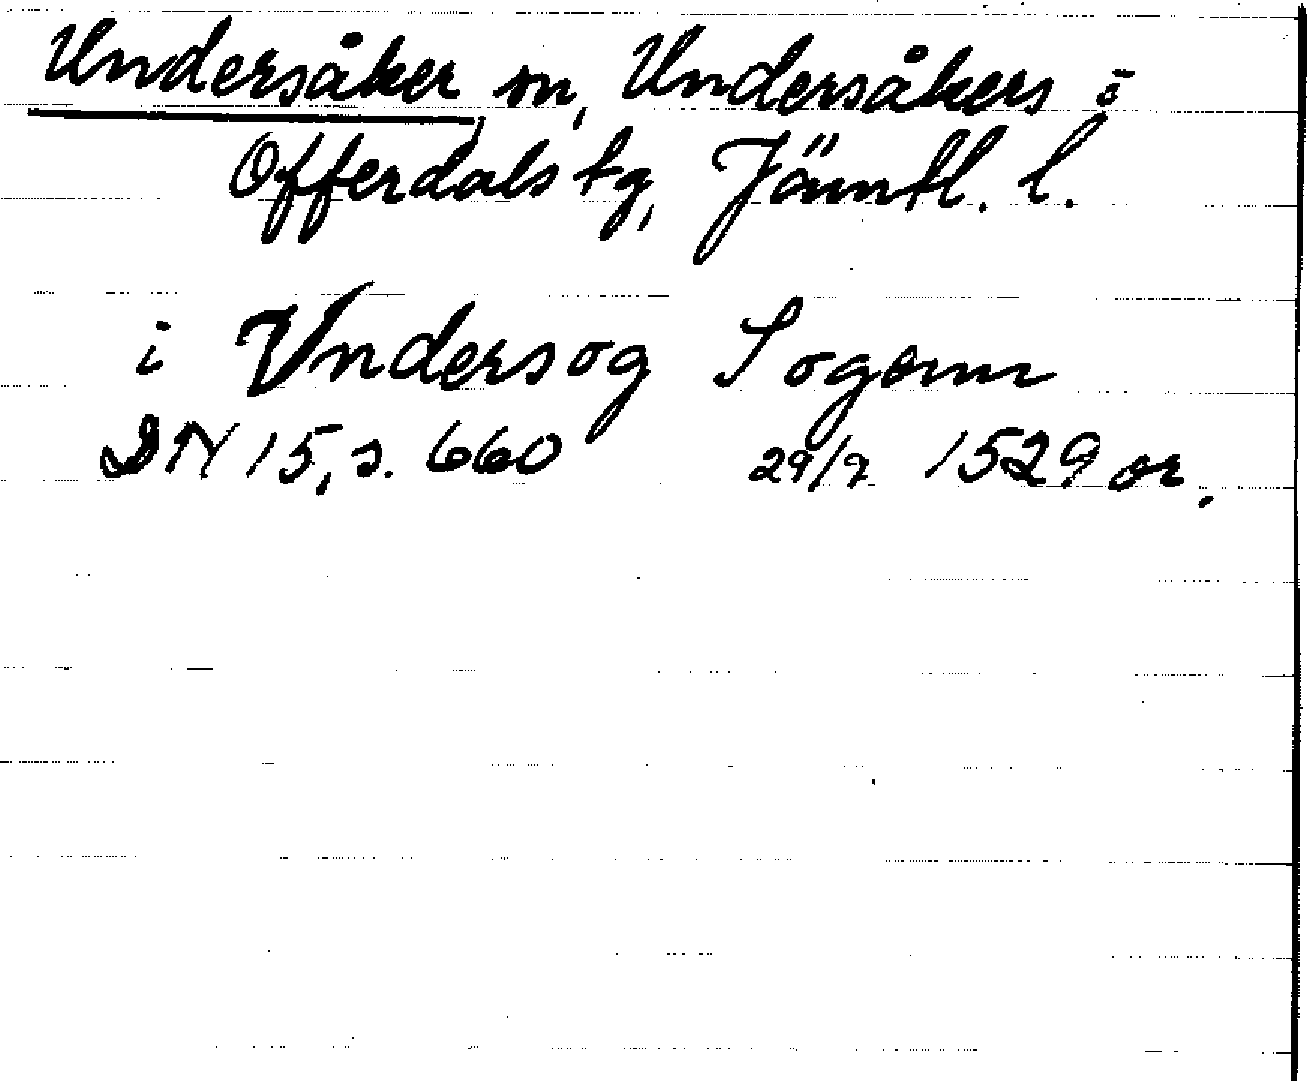 Undersåker sn, Undersåkers i
Offerdals tg, Jämtl. l.
i Vndersog Sogenn
DN 15, s. 660 29/9 1529 or.